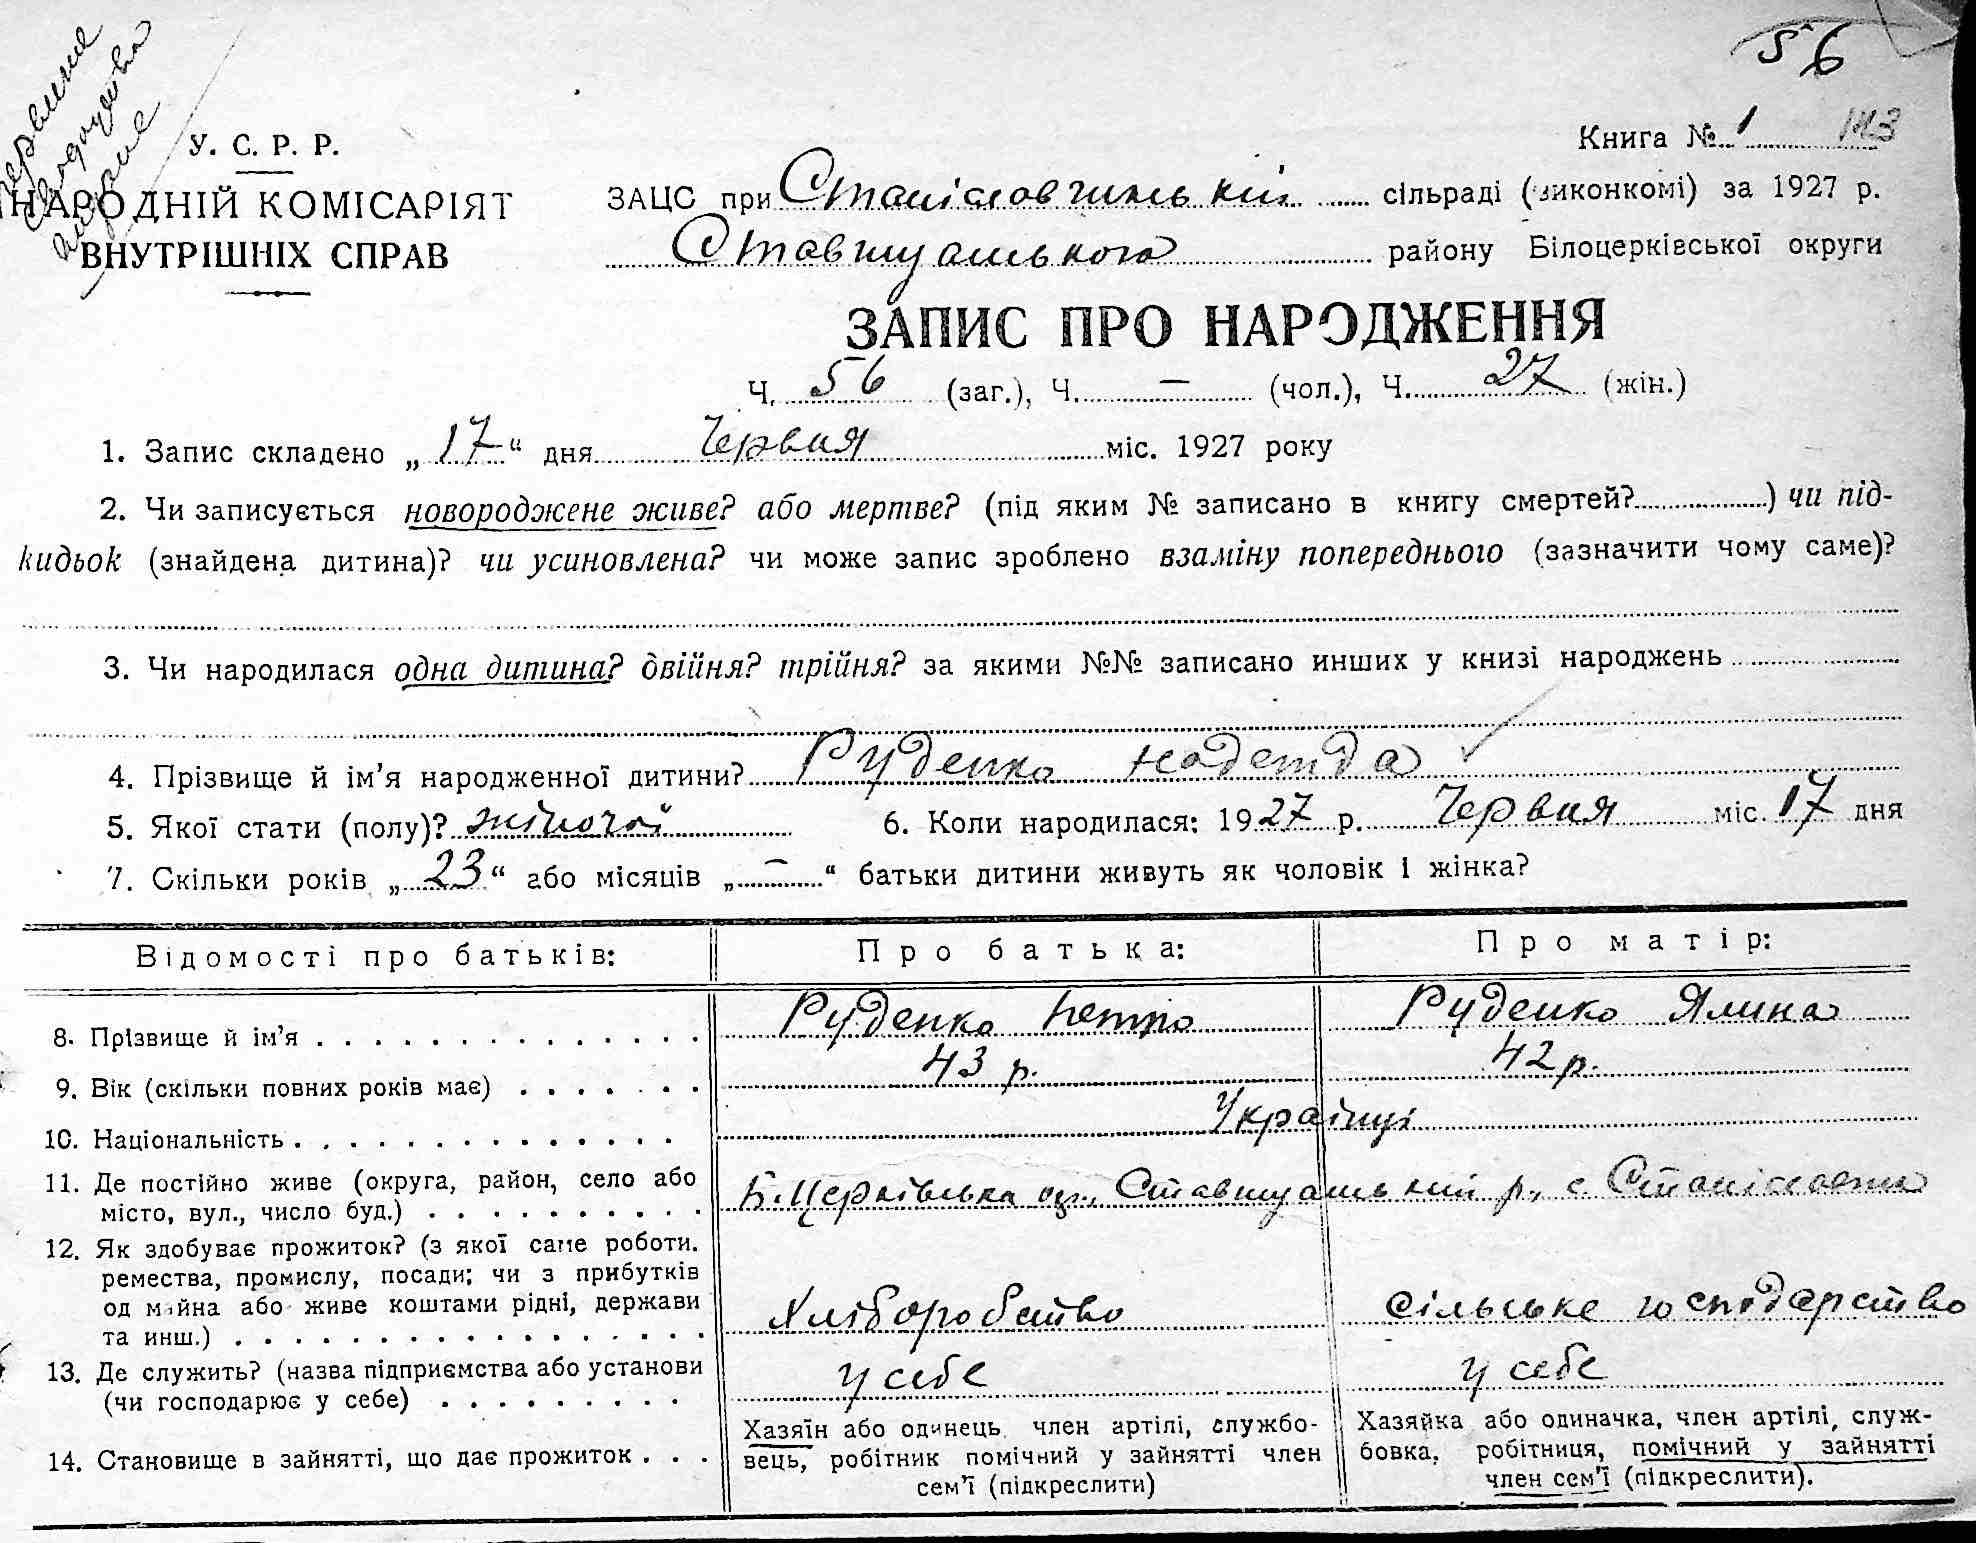 56
Книга № 1 143
У. С. Р. Р.
НАРОДНІЙ КОМІСАРІЯТ
ВНУТРІШНІХ СПРАВ
ЗАЦС при Станіславчинській сільраді (виконкомі) за 1927 р.
Ставищанського району Білоцерківської округи
ЗАПИС ПРО НАРОДЖЕННЯ
Ч. 56 (заг.), Ч. — (чол.), Ч. 27 (жін.)
1. Запис складено „17“ дня Червня міс. 1927 року
2. Чи записується новороджене живе? або мертве? (під яким № записано в книгу смертей?) чи під-
кидьок (знайдена дитина)? чи усиновлена? чи може запис зроблено взаміну попереднього (зазначити чому саме)?
3. Чи народилася одна дитина? двійня? трійня? за якими №№ записано инших у книзі народжень
4. Прізвище й ім’я народженної дитини? Руденко Надежда
5. Якої стати (полу)? жіночої 6. Коли народилася: 1927 р. Червня міс. 17 дня
7. Скільки років „23“ або місяців „—“ батьки дитини живуть як чоловік і жінка?
Відомості про батьків: Про батька: Про матір:
8. Прізвище й ім’я Руденко Петро Руденко Ялина
9. Вік (скільки повних років має) 43 р. 42 р.
10. Національність Українці
11. Де постійно живе (округа, район, село або
місто, вул., число буд.) Б.Церківська ок., Ставищанський р., с.
12. Як здобуває прожиток? (з якої саме роботи.
ремества, промислу, посади; чи з прибутків
од майна або живе коштами рідні, держави
та инш.) Хліборобство Сільське господарство
13. Де служить? (назва підприємства або установи
(чи господарює у себе) у себе у себе
14. Становище в зайнятті, що дає прожиток
Хазяїн або одинець, член артілі, службо-
вець, робітник помічний у зайнятті член
сем’ї (підкреслити)
Хазяйка або одиначка, член артілі, служ-
бовка, робітниця, помічний у зайнятті
член сем’ї (підкреслити).